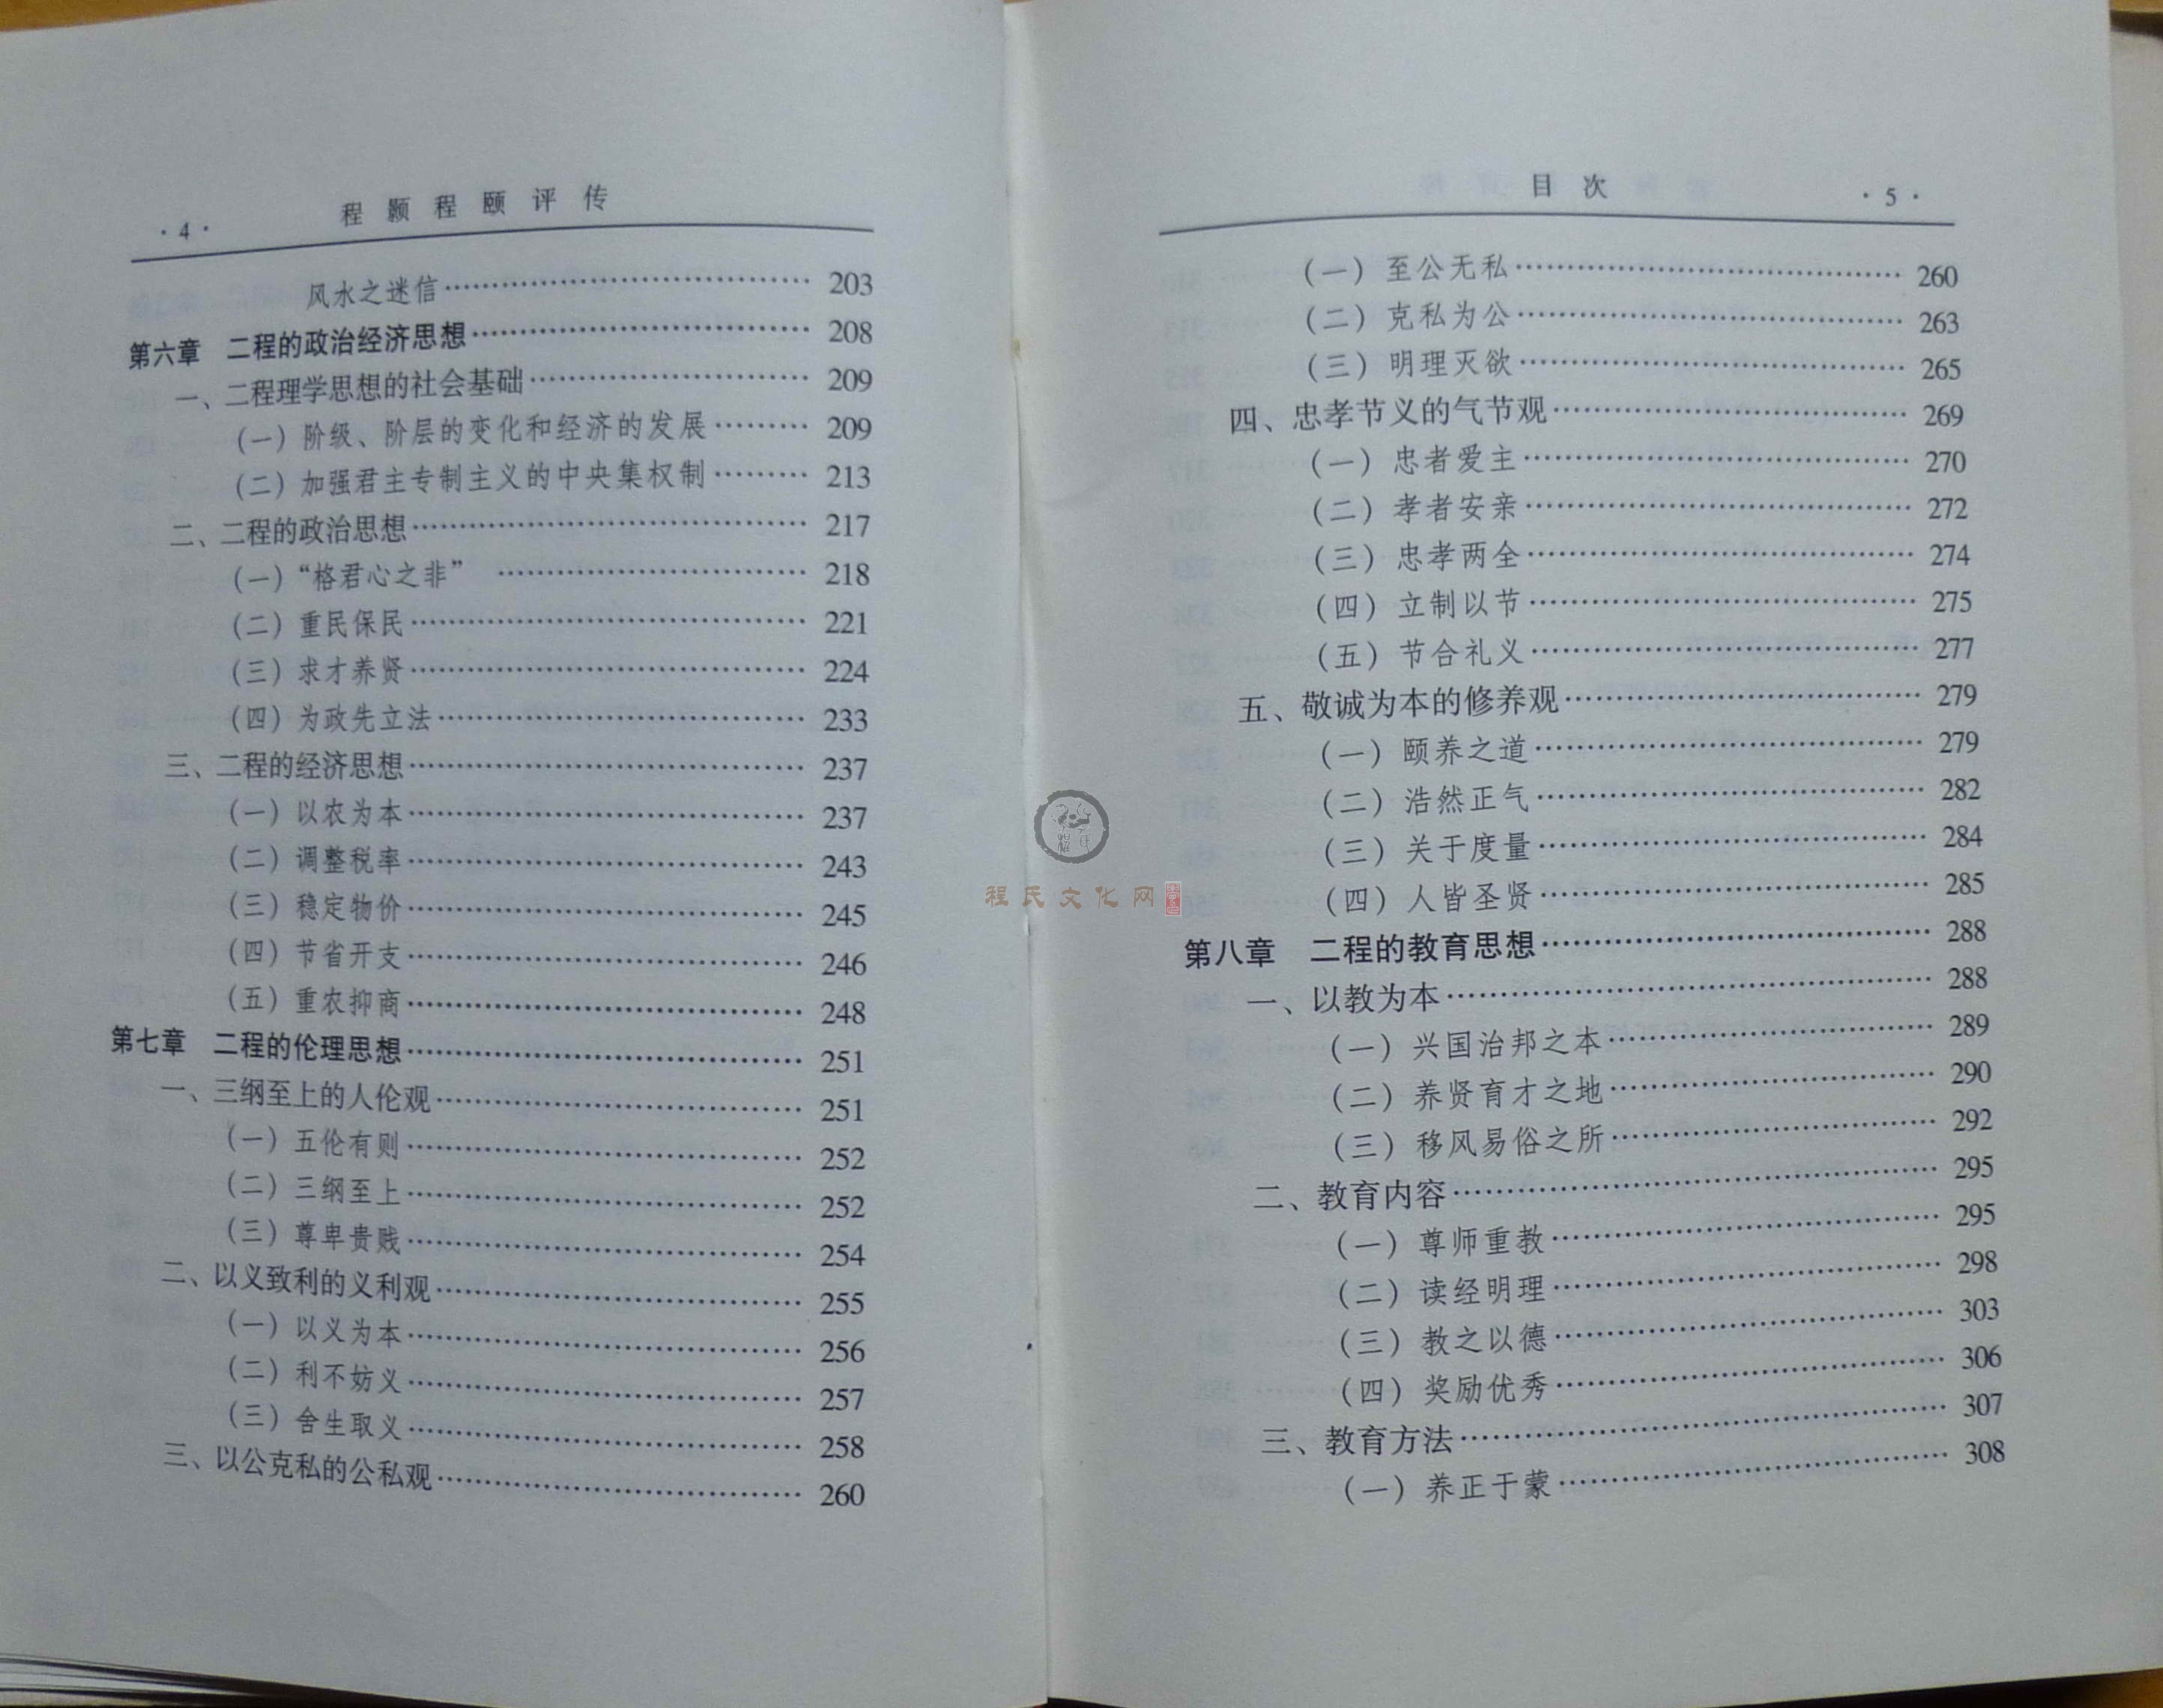 ·4· 程颢程颐评传
风水之迷信……………………………… 203
第六章 二程的政治经济思想……………………………… 208
一、二程理学思想的社会基础……………………………… 209
（一）阶级、阶层的变化和经济的发展……… 209
（二）加强君主专制主义的中央集权制……… 213
二、二程的政治思想……………………………… 217
（一）“格君心之非” ……………………………… 218
（二）重民保民……………………………… 221
（三）求才养贤……………………………… 224
（四）为政先立法……………………………… 233
三、二程的经济思想……………………………… 237
（一）以农为本……………………………… 237
（二）调整税率……………………………… 243
（三）稳定物价……………………………… 245
（四）节省开支……………………………… 246
（五）重农抑商……………………………… 248
第七章 二程的伦理思想……………………………… 251
一、三纲至上的人伦观……………………………… 251
（一）五伦有则……………………………… 252
（二）三纲至上……………………………… 252
（三）尊卑贵贱……………………………… 254
二、以义致利的义利观……………………………… 255
（一）以义为本……………………………… 256
（二）利不妨义……………………………… 257
（三）舍生取义……………………………… 258
三、以公克私的公私观……………………………… 260
目次 ·5·
（一）至公无私……………………………… 260
（二）克私为公……………………………… 263
（三）明理灭欲……………………………… 265
四、忠孝节义的气节观……………………………… 269
（一）忠者爱主……………………………… 270
（二）孝者安亲……………………………… 272
（三）忠孝两全……………………………… 274
（四）立制以节……………………………… 275
（五）节合礼义……………………………… 277
五、敬诚为本的修养观……………………………… 279
（一）颐养之道……………………………… 279
（二）浩然正气……………………………… 282
（三）关于度量……………………………… 284
（四）人皆圣贤……………………………… 285
第八章 二程的教育思想……………………………… 288
一、以教为本……………………………… 288
（一）兴国治邦之本……………………………… 289
（二）养贤育才之地……………………………… 290
（三）移风易俗之所……………………………… 292
二、教育内容……………………………… 295
（一）尊师重教……………………………… 295
（二）读经明理……………………………… 298
（三）教之以德……………………………… 303
（四）奖励优秀……………………………… 306
三、教育方法……………………………… 307
（一）养正于蒙……………………………… 308
程氏文化网